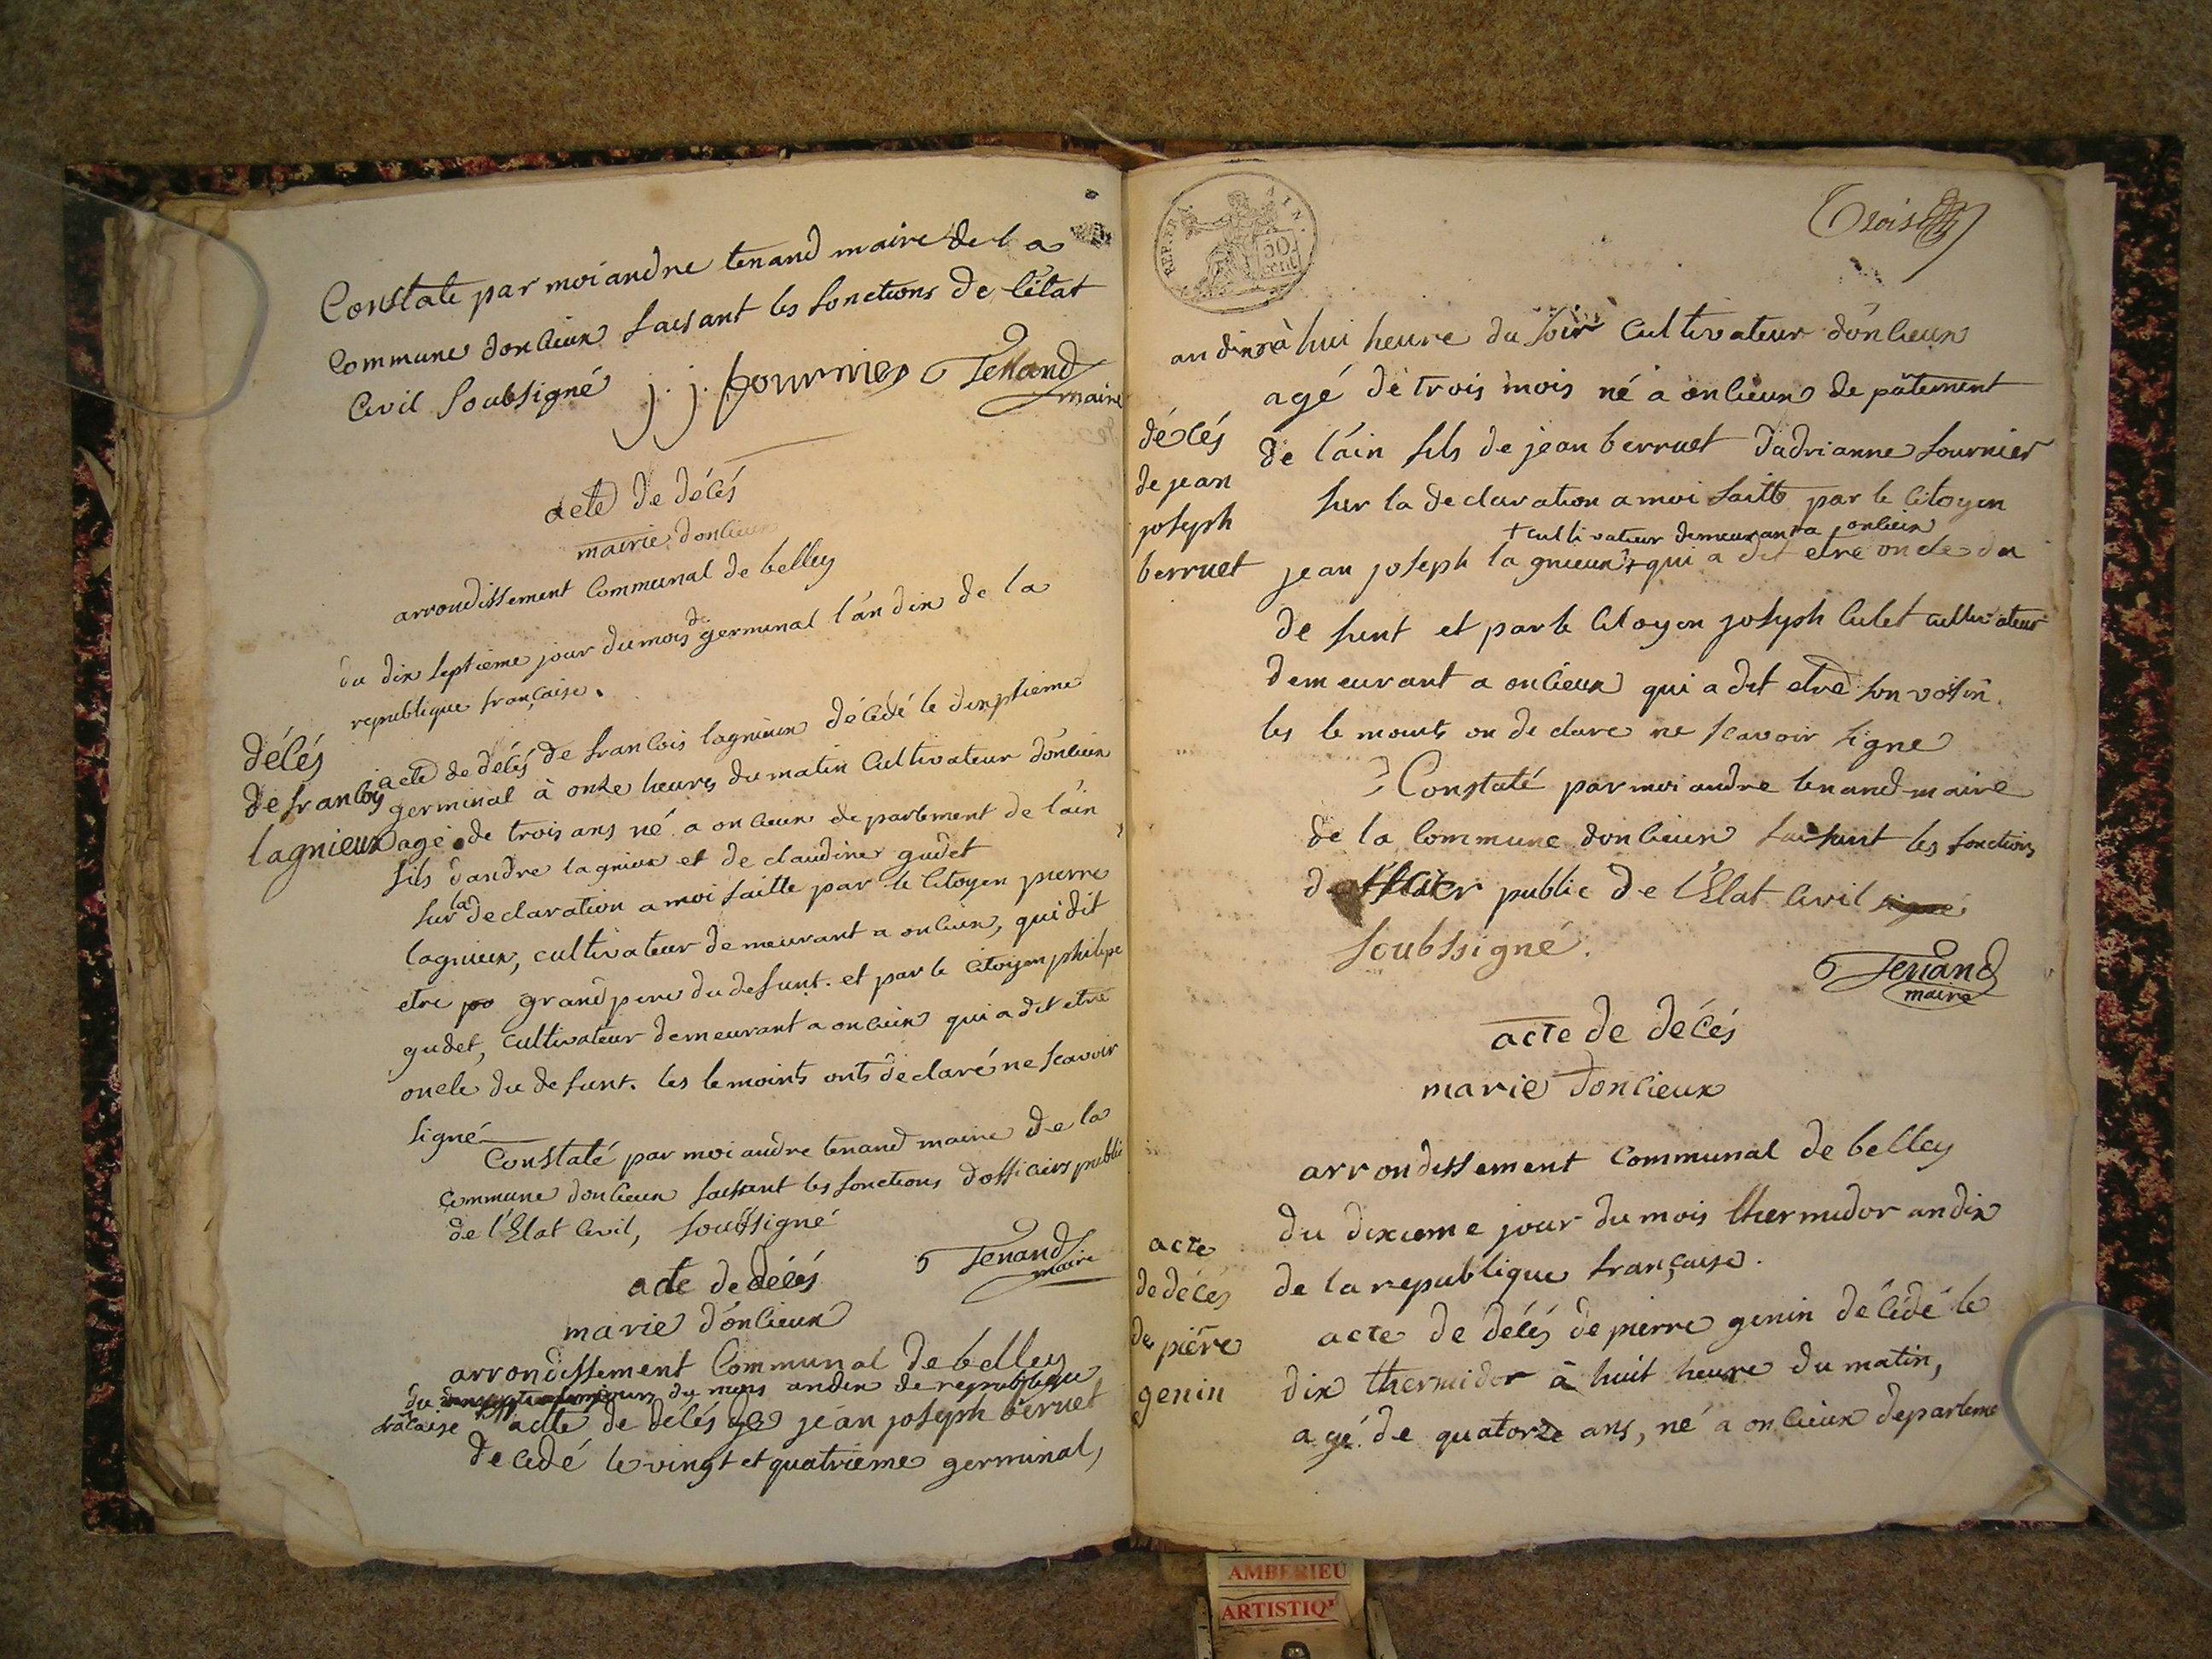 Constate par moi andre tenand maire de la
Commune donlieux faisant les fonctions de l'état
Civil Soubsigné j. j. fournier Tenand
maire
acte de décés
mairie donlieux
arrondissement Communal de belley
du dix septieme jour du mois de germinal l'an dix de la
republique française.
décés
de francois
lagnieux
acte de décés de francois lagnieux décédé le dixseptieme
germinal à onze heures du matin Cultivateur d'onlieux
agé de trois ans né a onlieux departement de l'ain
fils dandre lagnieux et de claudine gudet
sur la declaration a moi faitte par le Citoyen pierre
lagnieux, cultivateur demeurant a onlieux, qui dit
etre grand pere du defunt. et par le Citoyen philipe
gudet, Cultivateur demeurant a onlieux qui a dit etre
oncle du defunt. les temoints onts déclaré ne scavoir
signé
Constaté par moi andre tenand maire de la
Commune donlieux faisant les fonctions dofficiers public
de l'Etat Civil, soubsigné
Tenand
maire
acte de décés
marie d'onlieux
arrondissement Communal de belley
du mois an dix de republique
fracaise acte de décés de jean joseph berruet
décédé le vingt et quatrieme germinal,
REP. FRA. 50 cent
Trois
an dix à hui heure du soir Cultivateur d'onlieux
agé de trois mois né a onlieux département
décés
de jean
joseph
berruet
de l'ain fils de jean berruet dadrianne fournier
sur la declaration a moi faitte par le Citoyen
+ cultivateur demeurant a onlieux
jean joseph lagnieux + qui a dit etre oncle du
defunt et par le Citoyen joseph Culet cultivateur
demeurant a onlieux qui a dit etre son voisin.
les temoints on declare ne scavoir signe
Constaté par moi andre tenand maire
de la Commune donlieux faisant les fonctions
public de l'Etat Civil
soubssigné.
Tenand
maire
acte de décés
marie donlieux
arrondissement Communal de belley
du dixieme jour du mois thermidor an dix
de la republique française.
acte
de décés
de pierre
genin
acte de décés de pierre genin décédé le
dix thermidor à huit heure du matin,
agé de quatorze ans, né a onlieux departeme
AMBERIEU
ARTISTIQ